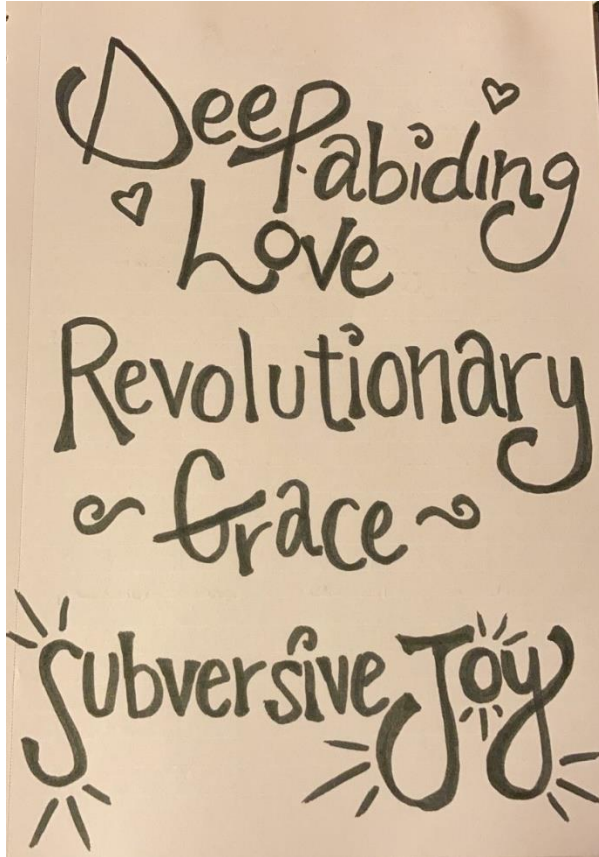 Deep.abiding
Love
Revolutionary
Grace
Subversive Joy